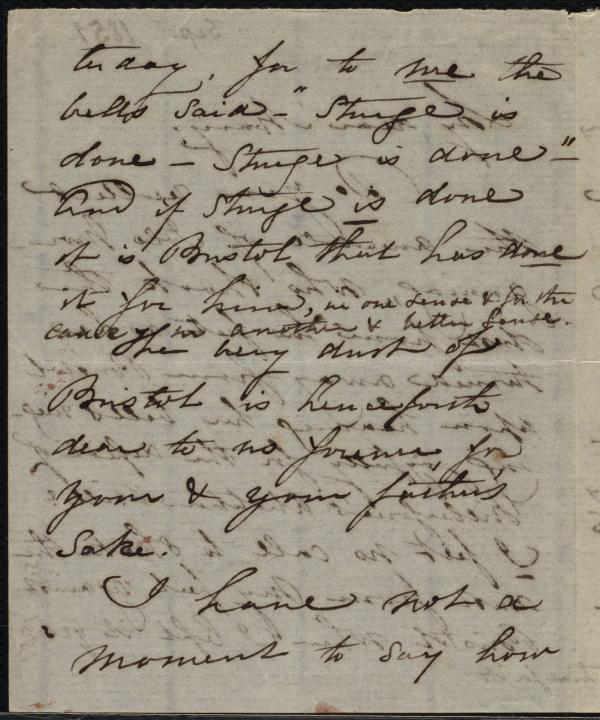 turday, for to me the
bells said - "Sturge is
done - Sturge is done" -
And if Sturge is done
it is Bristol that has done
it for him, in one sense & for the
cause, in another & better sense.
The very dust of
Bristol is henceforth
dear to us forever, for
your & your father's
sake.
I have not a
moment to say how